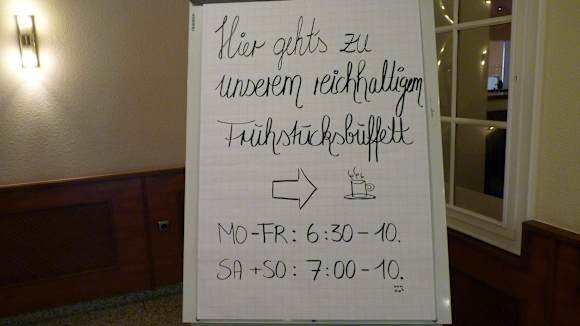 Hier gehts zu
unserem reichhaltigem
Frühstücksbüffett
MO-FR: 6:30-10.
SA+SO: 7:00-10.